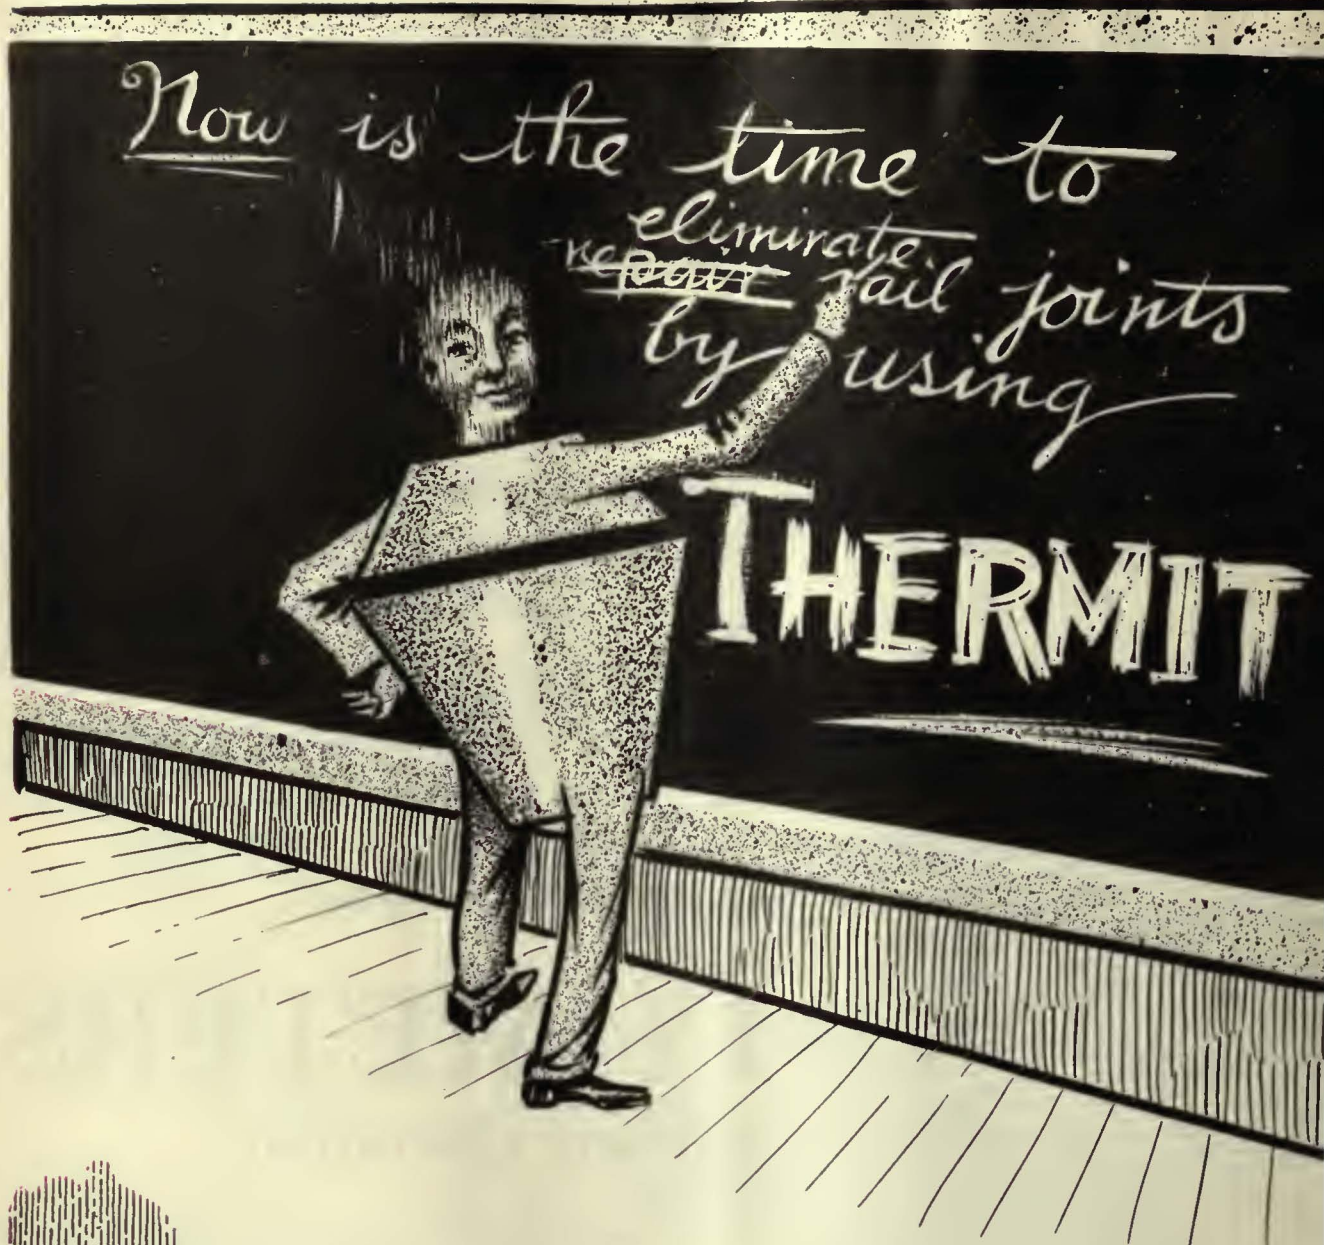 Now is the time to
eliminate
repair rail joints
by using
THERMIT